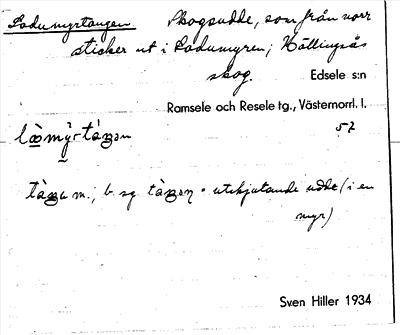 Ladumyrtangen   Skogsudde, som från norr
sticker ut i Ladumyren; Hällingsås
skog.   Edsele s:n
Ramsele och Resele tg., Västernorrl. l.
57
tàŋa m.; b. sg. tàŋan • utskjutande udde (i en
myr)
Sven Hiller 1934